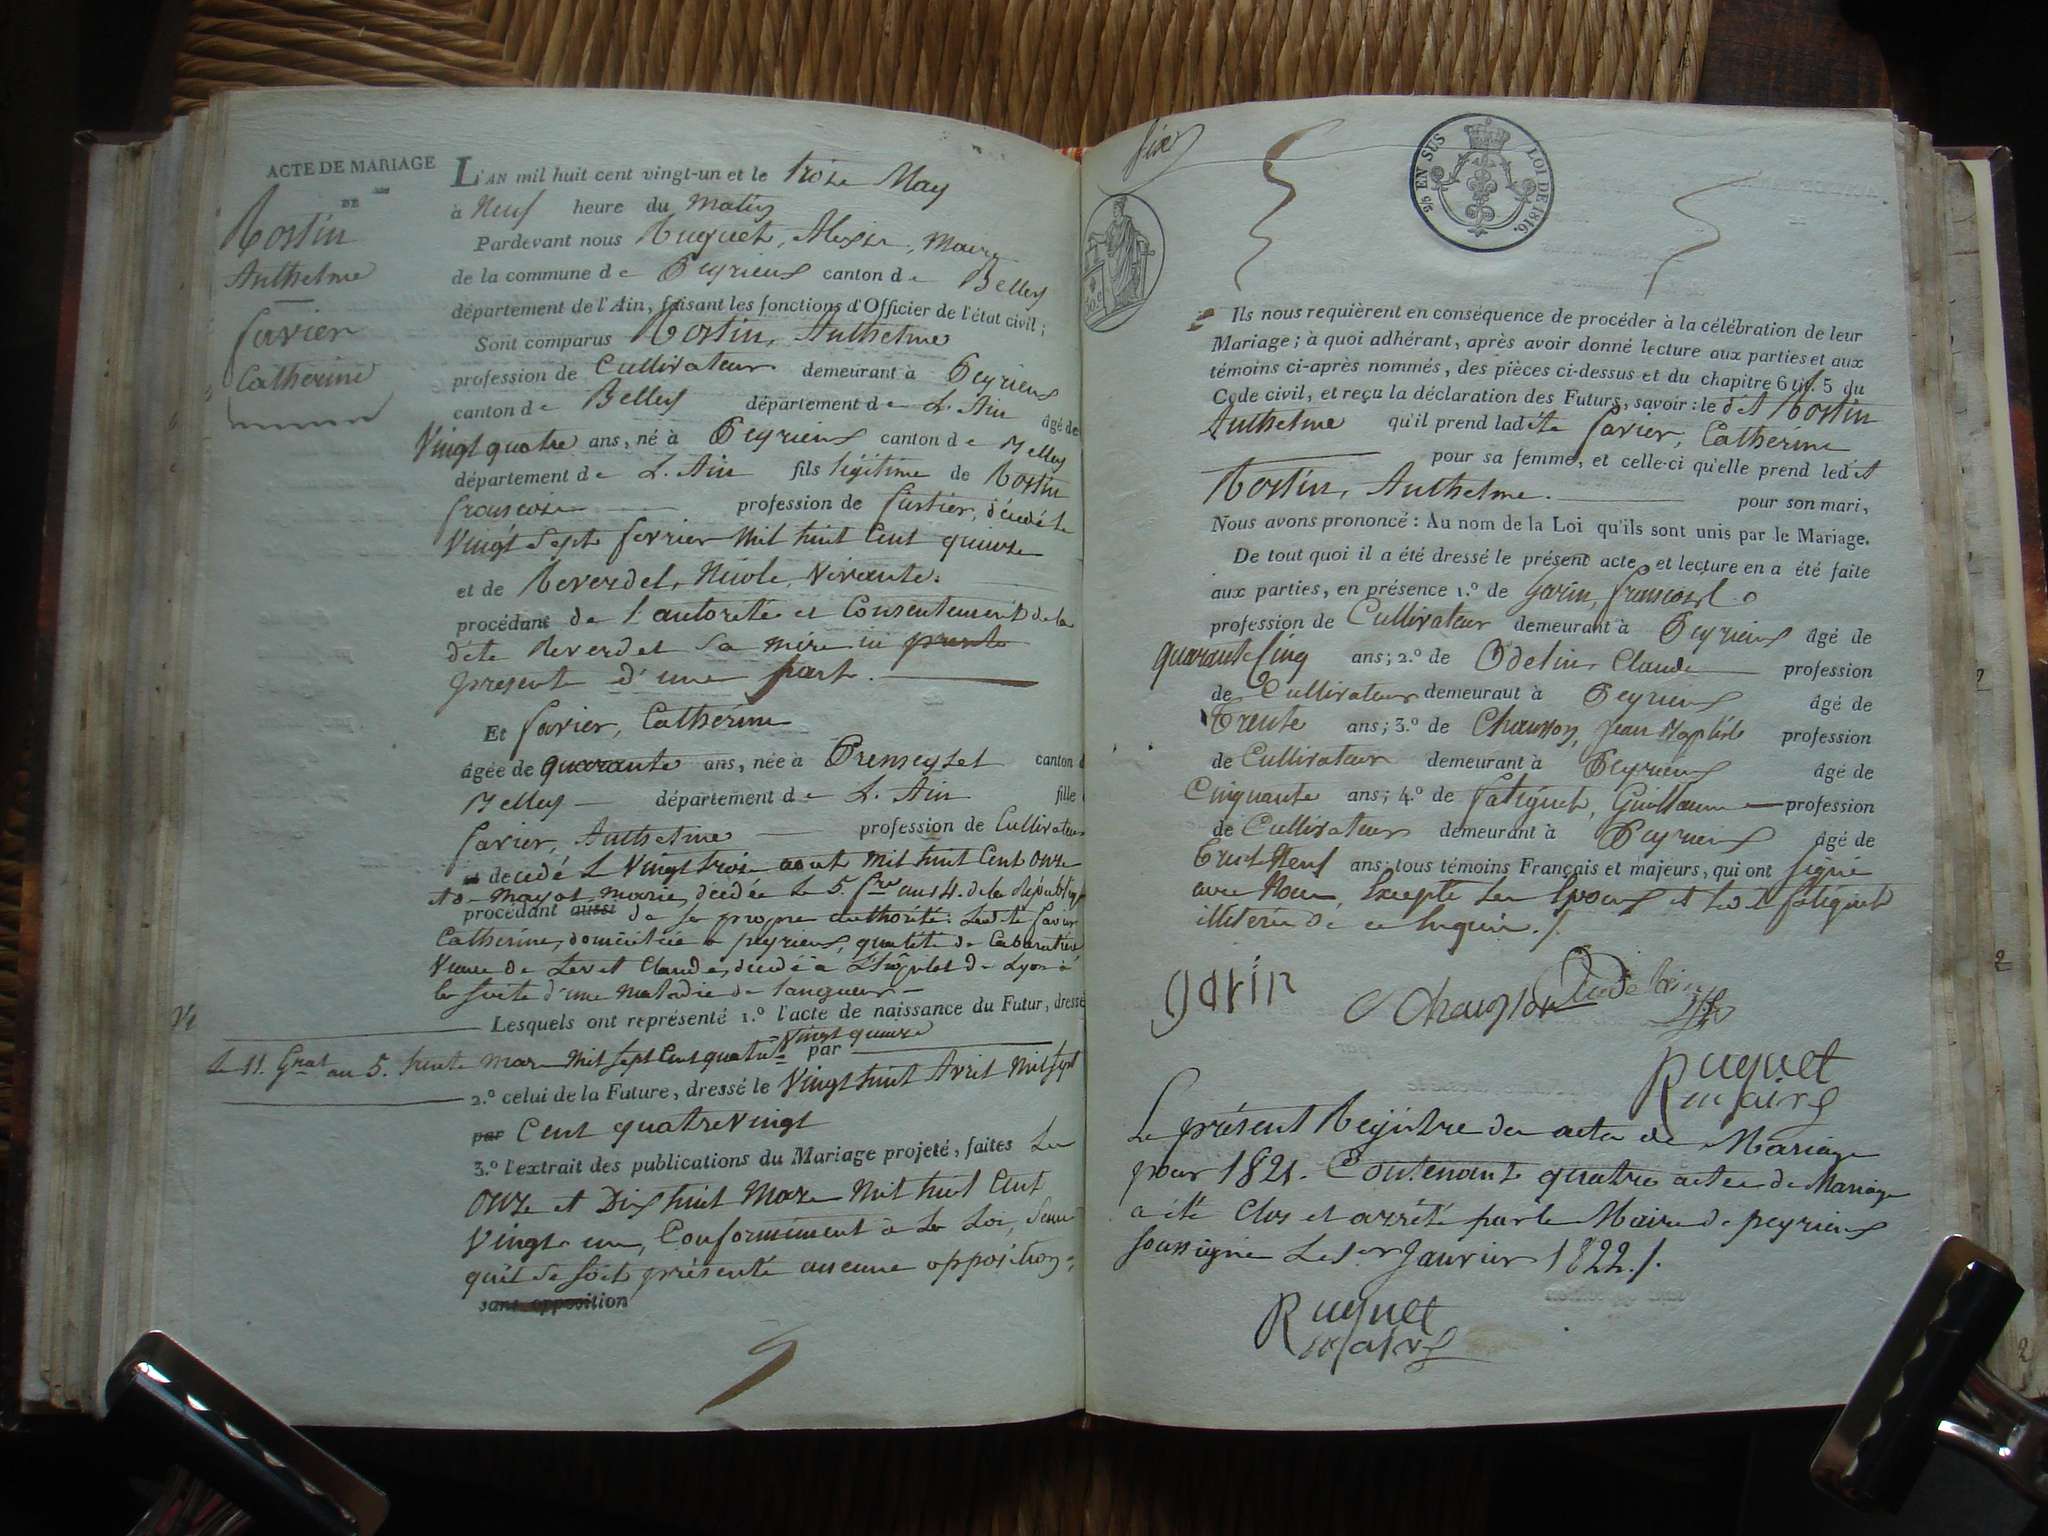 ACTE DE MARIAGE
DE
Rostin
Anthelme
Favier
Catherine
L'AN mil huit cent vingt-un et le troize May
à Neuf heure du matin
Pardevant nous Ruguet, Alexis, Maire
de la commune de Peyrieux canton de Belley
département de l'Ain, faisant les fonctions d'Officier de l'état civil;
Sont comparus Rostin, Anthelme
profession de Cultivateur demeurant à Peyrieux
canton de Belley département de L'Ain âgé de
Vingt quatre ans, né à Peyrieux canton de Belley
département de L'Ain fils légitime de Rostin
françoise profession de décédé le
Vingt Sept fevrier Mil huit Cent quinze
et de Reverdel, Nicole, vivante.
procédant de l'autorité et Consentement de la
dite Reverdel Sa mère ici
presente d'une part.
Et favier, Catherine
âgée de quarante ans, née à Premeyzel canton d
Belley département de L'Ain fille
favier, Anthelme profession de Cultivateur
decedé le Vingt trois aout Mil huit Cent onze
et de Mayot, marie, décédée le 5. fre an 14. de la républiq
procédant aussi de sa propre authorité. Ladite favier
Catherine, domiciliée à peyrieux, qualité de Cabaretière
Veuve de Levet Claude, décédé à L'hôpital de Lyon à
la suite d'une maladie de langueur
Lesquels ont représenté 1.º l'acte de naissance du Futur, dressé
Vingt quinze
Le 11. Gnal an 5. trente Mars Mil Sept Cent quatre par
2.º celui de la Future, dressé le Vingt huit Avril Mil Sept
par Cent quatre vingt
3.º l'extrait des publications du Mariage projeté, faites Les
onze et Dix huit Mars Mil huit Cent
Vingt un, Conformément à La Loi, Sans
qu'il se soit présenté aucune opposition.
sans opposition
25 EN SUS
LOI DE 1816.
Ils nous requièrent en conséquence de procéder à la célébration de leur
Mariage; à quoi adhérant, après avoir donné lecture aux parties et aux
témoins ci-après nommés, des pièces ci-dessus et du chapitre 6 tit. 5 du
Code civil, et reçu la déclaration des Futurs, savoir: le dit Rostin
Anthelme qu'il prend ladite favier, Catherine
pour sa femme, et celle-ci qu'elle prend ledit
Rostin, Anthelme. pour son mari,
Nous avons prononcé: Au nom de la Loi qu'ils sont unis par le Mariage.
De tout quoi il a été dressé le présent acte et lecture en a été faite
aux parties, en présence 1.º de Garin, françois
profession de Cultivateur demeurant à Peyrieux âgé de
quarante Cinq ans; 2.º de Odelin, Claude profession
de Cultivateur demeurant à Peyrieux âgé de
Trente ans; 3.º de Chausson, Jean Baptiste profession
de Cultivateur demeurant à Peyrieux âgé de
Cinquante ans; 4.º de fatiguet, Guillaume profession
de Cultivateur demeurant à Peyrieux âgé de
Trente Neuf ans; tous témoins Français et majeurs, qui ont signé
avec Nous, Excepté Les Epoux et led. fatiguet
illiterés de ce requis./.
garin
Chausson
Ruguet
maire
Le présent Registre des actes de Mariage
pour 1821. Contenant quatre actes de Mariage
a été Clos et arrêté par le Maire de peyrieux
soussigné Le 1er Janvier 1822./.
Ruguet
maire